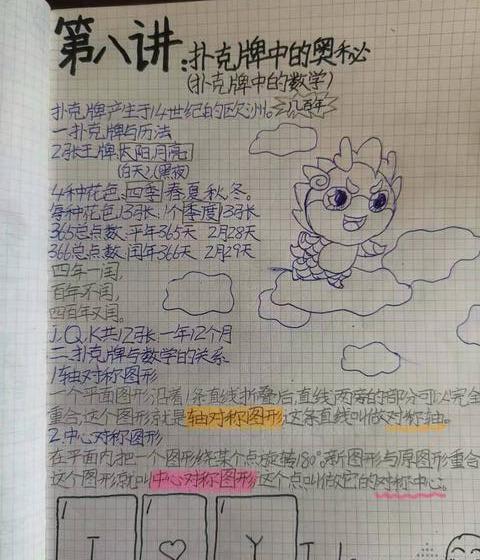 第八讲:扑克牌中的奥秘
(扑克牌中的数学)
扑克牌产生于14世纪的欧洲。几百年
一.扑克牌与历法
2张王牌.太阳.月亮
(白天)(黑夜)
4种花色.四季 春.夏.秋.冬。
每种花色13张.1个季度13张
365总点数.平年365天 2月28天
366总点数.闰年366天 2月29天
四年一闰,
百年不闰,
四百年又闰。
J.Q.K共12张一年12个月
二.扑克牌与数学的关系
1.轴对称图形
一个平面图形沿着1条直线折叠后,直线两旁的部分可以完全
重合,这个图形就是轴对称图形这条直线叫做对称轴。
2.中心对称图形
在平面内把一个图形绕某个点旋转180°新图形与原图形重合
这个图形就叫中心对称图形这个点叫做它的对称中心。
I ♡ Y